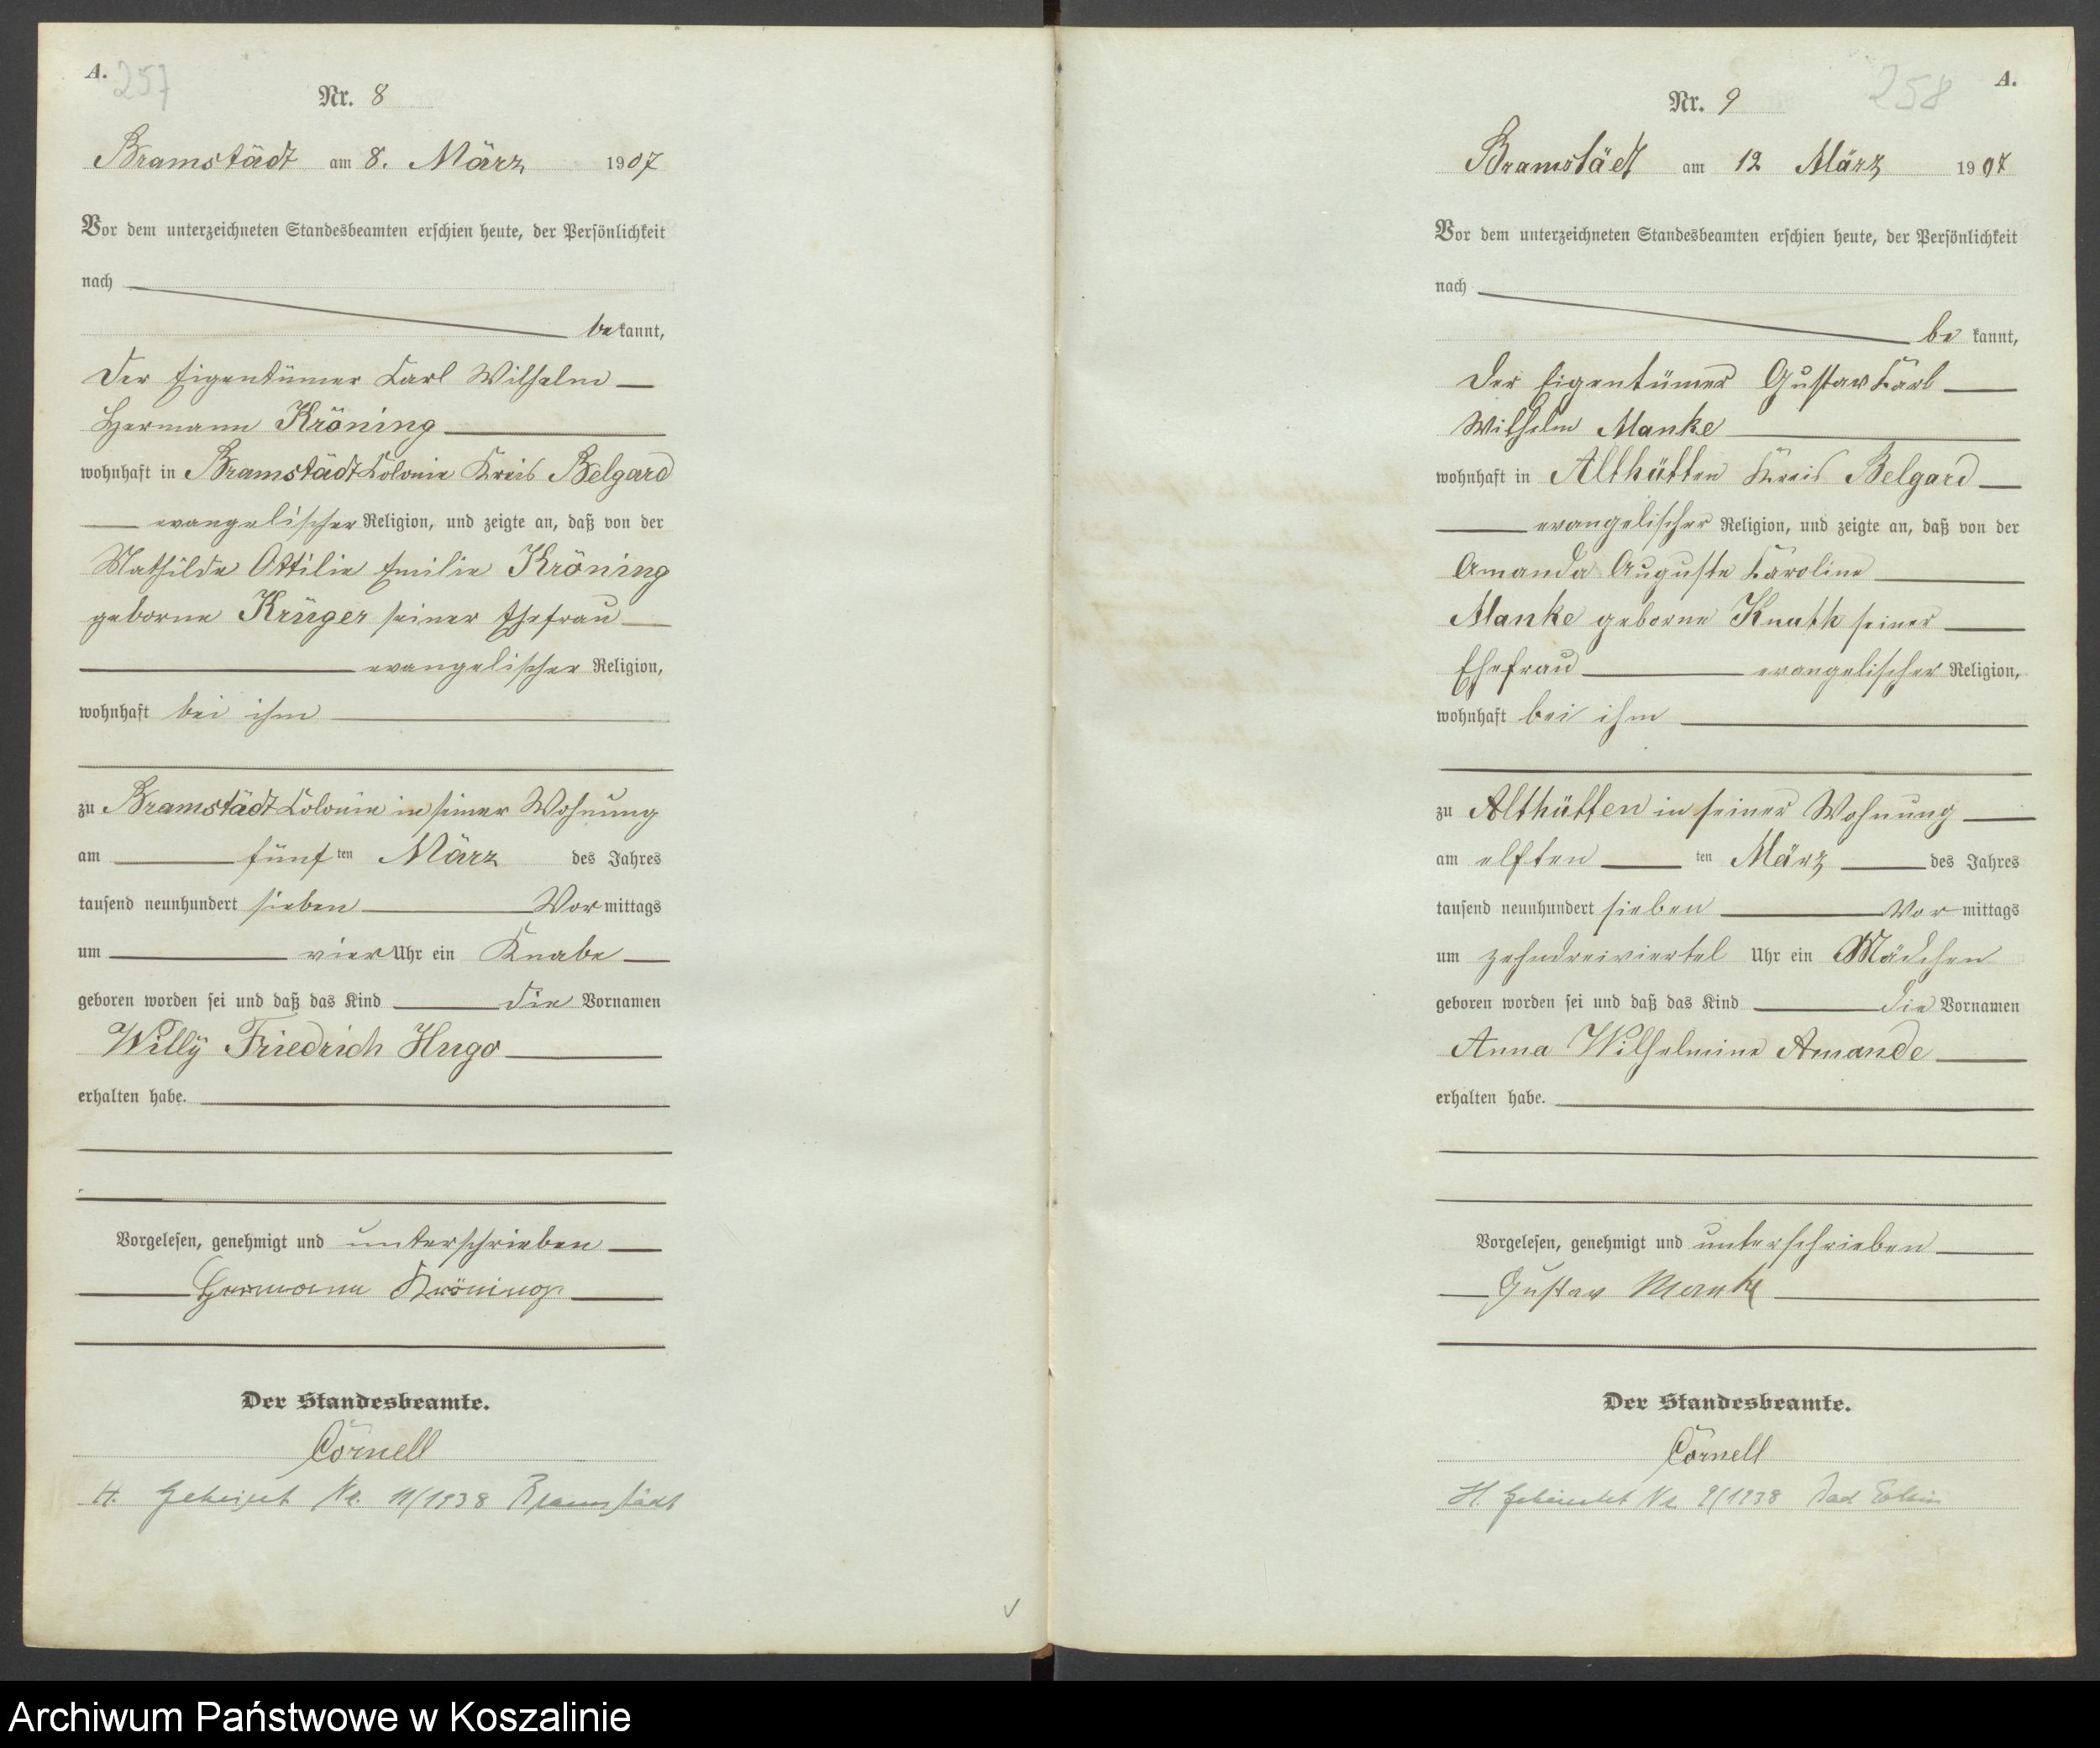 A. 257
Nr. 8
Bramstädt am 8. März 1907
Vor dem unterzeichneten Standesbeamten erschien heute, der Persönlichkeit
nach
be kannt,
der Eigentümer Carl Wilhelm
Hermann Kröning
wohnhaft in Bramstädt Colonie Kreis Belgard
evangelischer Religion, und zeigte an, daß von der
Mathilde Ottilie Emilie Kröning
geborne Krüger seiner Ehefrau
evangelischer Religion,
wohnhaft bei ihm
zu Bramstädt Colonie in seiner Wohnung
am fünf ten März des Jahres
tausend neunhundert sieben Vor mittags
um vier Uhr ein Knabe
geboren worden sei und daß das Kind die Vornamen
Willy Friedrich Hugo
erhalten habe.
Vorgelesen, genehmigt und unterschrieben
Hermann Kröning
Der Standesbeamte.
Cörnell
H. Geheirat Nr. 11/1938 Bramstädt
258 A.
Nr. 9
Bramstädt am 12 März 1907
Vor dem unterzeichneten Standesbeamten erschien heute, der Persönlichkeit
nach
be kannt,
der Eigentümer Gustav Karl
Wilhelm Manke
wohnhaft in Althütten Kreis Belgard
evangelischer Religion, und zeigte an, daß von der
Amanda Auguste Karoline
Manke geborne Knuth seiner
Ehefrau evangelischer Religion,
wohnhaft bei ihm
zu Althütten in seiner Wohnung
am elften ten März des Jahres
tausend neunhundert sieben Vor mittags
um zehndreiviertel Uhr ein Mädchen
geboren worden sei und daß das Kind die Vornamen
Anna Wilhelmine Amande
erhalten habe.
Vorgelesen, genehmigt und unterschrieben
Gustav Manke
Der Standesbeamte.
Cörnell
H. Geheiratet Nr 9/1938 Bad
Archiwum Państwowe w Koszalinie